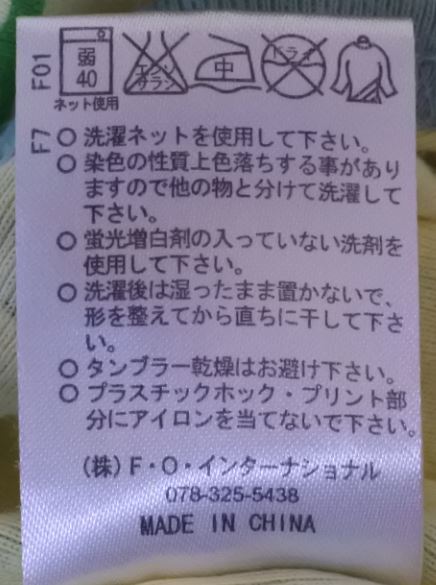 F01
弱
40
エンソ
サラシ
中
ドライ
ネット使用
F7
○ 洗濯ネットを使用して下さい。
○ 染色の性質上色落ちする事があり
ますので他の物と分けて洗濯して
下さい。
○ 蛍光増白剤の入っていない洗剤を
使用して下さい。
○ 洗濯後は湿ったまま置かないで、
形を整えてから直ちに干して下さ
い。
○ タンブラー乾燥はお避け下さい。
○ プラスチックホック・プリント部
分にアイロンを当てないで下さい。
(株)F・O・インターナショナル
078-325-5438
MADE IN CHINA